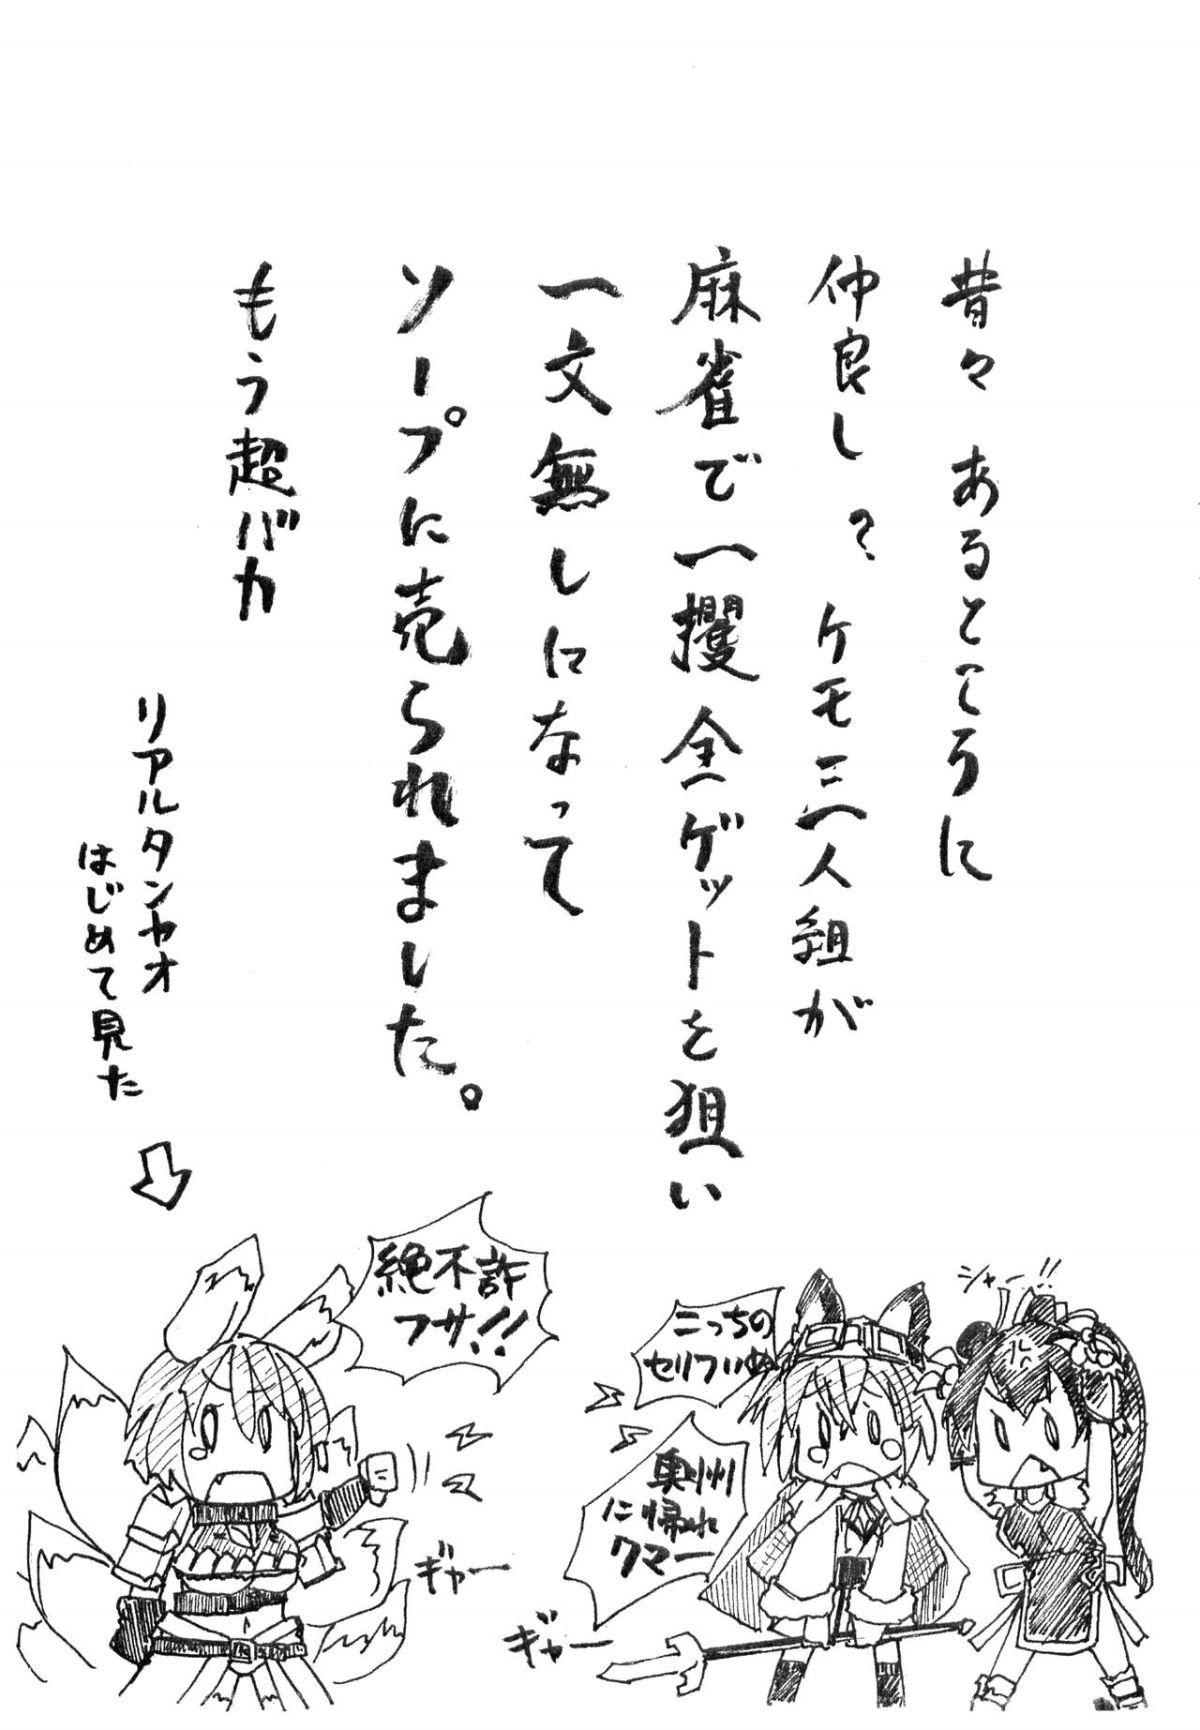 昔々 あるところに
仲良し？ケモ三人組が
麻雀で一攫全ゲットを狙い
一文無しになって
ソープに売られました。
もう超バカ
リアルタンヤオ
はじめて見た
絶不許
フサ!!
ギャー
シャー!!
こっちの
セリフいぬ
奥州
に帰れ
クマー
ギャー